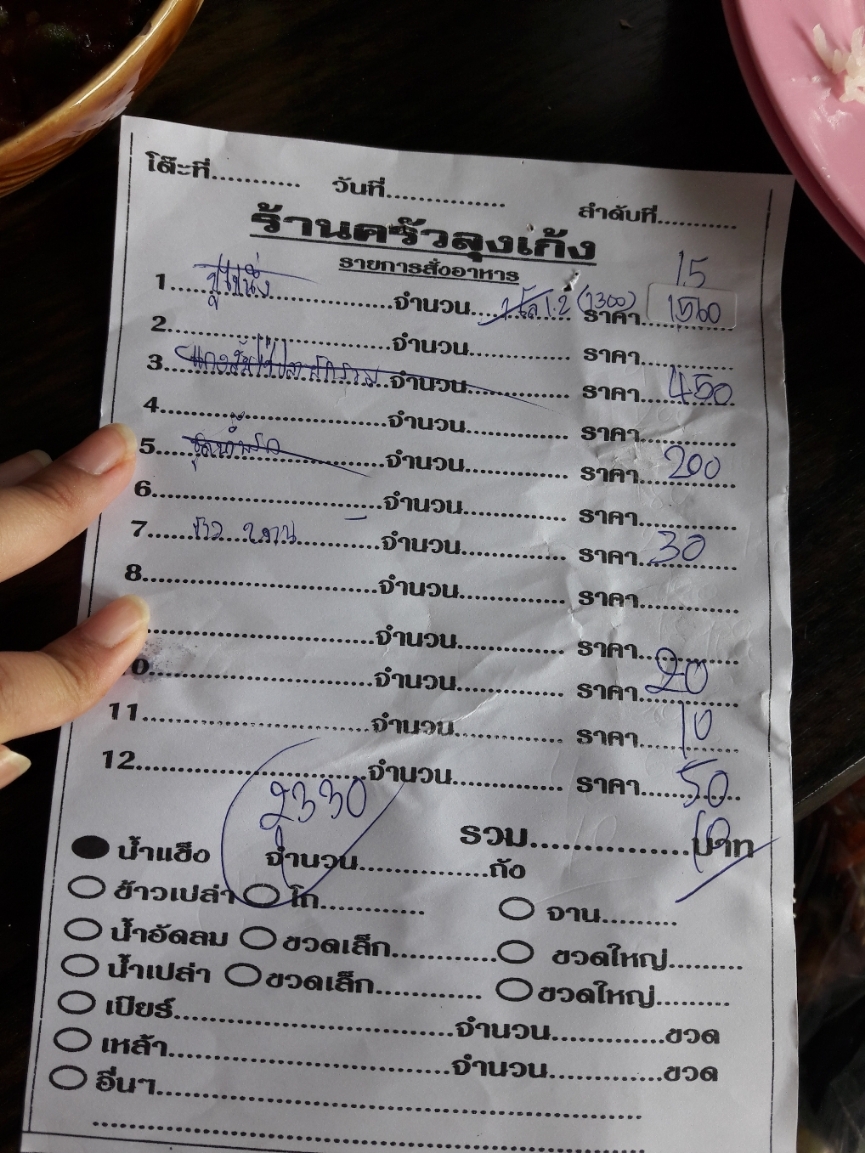 โต๊ะที่........... วันที่............... ลำดับที่..........
ร้านครัวลุงเก้ง
รายการสั่งอาหาร
15
1....ปูไข่นึ่ง....จำนวน....1.2 (1300) ราคา....1560
2....................จำนวน............. ราคา.............
3....................จำนวน............. ราคา....450
4....................จำนวน............. ราคา.............
5....ชุดน้ำพริก....จำนวน............. ราคา....200
6....................จำนวน............. ราคา.............
7....ข้าว 2 จาน....จำนวน............. ราคา....30
8....................จำนวน............. ราคา.............
....................จำนวน............. ราคา.............
0....................จำนวน............. ราคา....20
11....................จำนวน............. ราคา....10
12....................จำนวน............. ราคา....50
2330
รวม................บาท
น้ำแข็ง จำนวน..............ถัง
ข้าวเปล่า โถ........... จาน.........
น้ำอัดลม ขวดเล็ก........... ขวดใหญ่.........
น้ำเปล่า ขวดเล็ก........... ขวดใหญ่.........
เบียร์..............................จำนวน...........ขวด
เหล้า..............................จำนวน...........ขวด
อื่นๆ......................................................